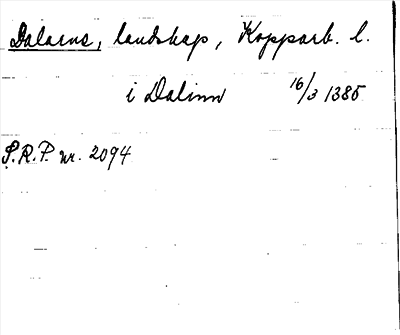 Dalarne, landskap, Kopparb. l.
i Dalinn 16/3 1385
S.R.P. nr. 2094